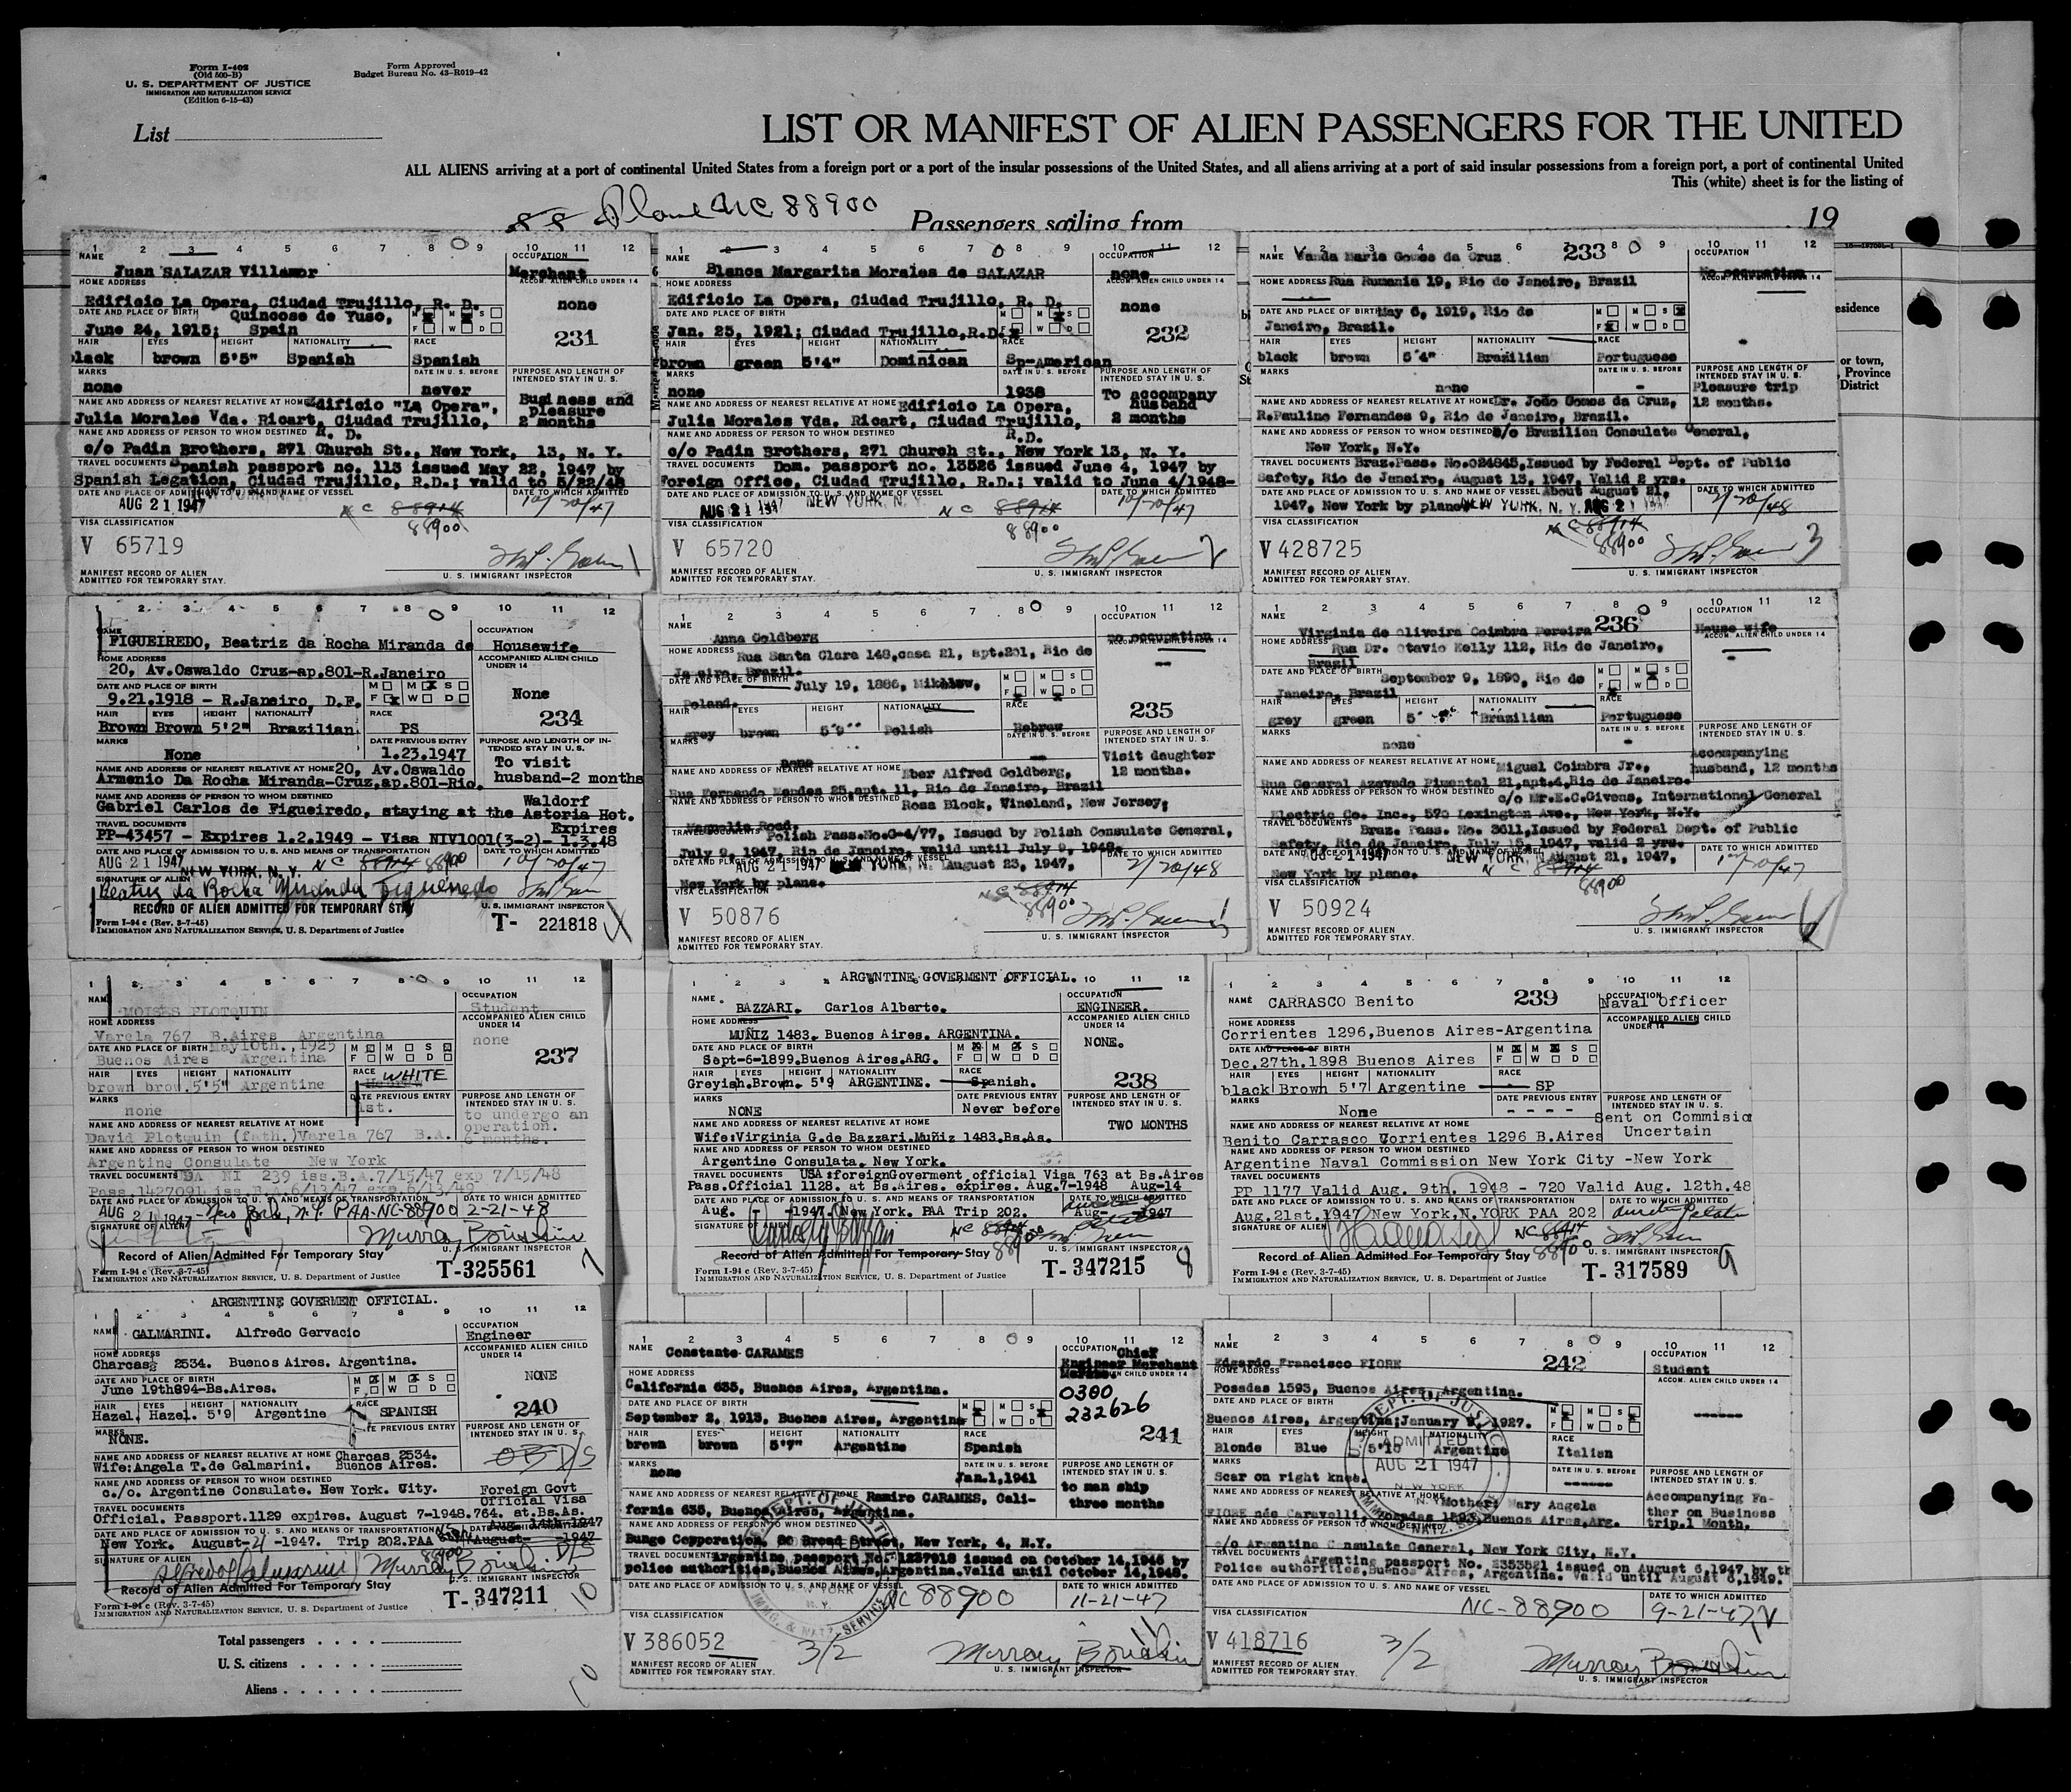 Form I-402
(Old 500-B)
U. S. DEPARTMENT OF JUSTICE
IMMIGRATION AND NATURALIZATION SERVICE
(Edition 6-15-43)
Form Approved
Budget Bureau No. 43-R019-42
List
LIST OR MANIFEST OF ALIEN PASSENGERS FOR THE UNITED
ALL ALIENS arriving at a port of continental United States from a foreign port or a port of the insular possessions of the United States, and all aliens arriving at a port of said insular possessions from a foreign port, a port of continental United
This (white) sheet is for the listing of
Plane NC 88900
Passengers sailing from
19
1 2 3 4 5 6 7 8 9 10 11 12
NAME OCCUPATION
Juan SALAZAR Villamor Merchant
HOME ADDRESS ACCOM. ALIEN CHILD UNDER 14
Edificio La Opera, Ciudad Trujillo, R. D. none
DATE AND PLACE OF BIRTH Quincose de Yuso, M M S
June 24, 1915; Spain F W D
231
HAIR EYES HEIGHT NATIONALITY RACE
black brown 5'5" Spanish Spanish
MARKS DATE IN U. S. BEFORE PURPOSE AND LENGTH OF INTENDED STAY IN U. S.
none never
NAME AND ADDRESS OF NEAREST RELATIVE AT HOME Edificio "La Opera", Business and pleasure
Julia Morales Vda. Ricart, Ciudad Trujillo, 2 months
NAME AND ADDRESS OF PERSON TO WHOM DESTINED R. D.
c/o Padin Brothers, 271 Church St., New York, 13, N. Y.
TRAVEL DOCUMENTS Spanish passport no. 113 issued May 22, 1947 by
Spanish Legation, Ciudad Trujillo, R.D.; valid to 5/22/48
DATE AND PLACE OF ADMISSION TO U. S. AND NAME OF VESSEL DATE TO WHICH ADMITTED
AUG 21 1947 NC 88914 10/20/47
88900
VISA CLASSIFICATION
V 65719
MANIFEST RECORD OF ALIEN
ADMITTED FOR TEMPORARY STAY.
U. S. IMMIGRANT INSPECTOR
1
1 2 3 4 5 6 7 8 9 10 11 12
NAME OCCUPATION
Blanca Margarita Morales de SALAZAR none
HOME ADDRESS ACCOM. ALIEN CHILD UNDER 14
Edificio La Opera, Ciudad Trujillo, R. D. none
DATE AND PLACE OF BIRTH M M S
Jan. 25, 1921; Ciudad Trujillo,R.D. F W D
232
HAIR EYES HEIGHT NATIONALITY RACE
brown green 5'4" Dominican Sp-American
MARKS PURPOSE AND LENGTH OF INTENDED STAY IN U. S.
none 1938 To accompany husband
NAME AND ADDRESS OF NEAREST RELATIVE AT HOME Edificio La Opera,
Julia Morales Vda. Ricart, Ciudad Trujillo, 2 months
NAME AND ADDRESS OF PERSON TO WHOM DESTINED R.D.
c/o Padin Brothers, 271 Church st., New York 13, N. Y.
TRAVEL DOCUMENTS Dom. passport no. 13526 issued June 4, 1947 by
Foreign Office, Ciudad Trujillo, R.D.; valid to June 4/1948-
DATE AND PLACE OF ADMISSION TO U. S. AND NAME OF VESSEL DATE TO WHICH ADMITTED
AUG 21 1947 NEW YORK, N. Y. NC 88914 10/20/47
88900
VISA CLASSIFICATION
V 65720
MANIFEST RECORD OF ALIEN
ADMITTED FOR TEMPORARY STAY.
U. S. IMMIGRANT INSPECTOR
2
1 2 3 4 5 6 7 8 9 10 11 12
NAME Vanda Maria Gomes da Cruz 233 OCCUPATION
No occupation
HOME ADDRESS Rua Rumania 19, Rio de Janeiro, Brazil ACCOM. ALIEN CHILD UNDER 14
DATE AND PLACE OF BIRTH May 6, 1919, Rio de M M S
Janeiro, Brazil. F W D
HAIR EYES HEIGHT NATIONALITY RACE
black brown 5'4" Brazilian Portuguese
MARKS DATE IN U. S. BEFORE PURPOSE AND LENGTH OF INTENDED STAY IN U. S.
none - Pleasure trip
NAME AND ADDRESS OF NEAREST RELATIVE AT HOME Dr. João Gomes da Cruz, 12 months.
R.Paulino Fernandes 9, Rio de Janeiro, Brazil.
NAME AND ADDRESS OF PERSON TO WHOM DESTINED c/o Brazilian Consulate General,
New York, N.Y.
TRAVEL DOCUMENTS Braz.Pass. No.024845,Issued by Federal Dept. of Public
Safety, Rio de Janeiro, August 13, 1947, Valid 2 yrs.
DATE AND PLACE OF ADMISSION TO U. S. AND NAME OF VESSEL About August 21, DATE TO WHICH ADMITTED
1947, New York by plane NEW YORK, N. Y. AUG 21 2/20/48
NC 88914
88900
VISA CLASSIFICATION
V 428725
MANIFEST RECORD OF ALIEN
ADMITTED FOR TEMPORARY STAY.
U. S. IMMIGRANT INSPECTOR
3
esidence
or town,
, Province
District
1 2 3 4 5 6 7 8 9 10 11 12
NAME OCCUPATION
FIGUEIREDO, Beatriz da Rocha Miranda de Housewife
HOME ADDRESS ACCOMPANIED ALIEN CHILD UNDER 14
20, Av.Oswaldo Cruz-ap.801-R.Janeiro
DATE AND PLACE OF BIRTH M M S None
9.21.1918 - R.Janeiro, D.F. F W D
234
HAIR EYES HEIGHT NATIONALITY RACE
Brown Brown 5'2" Brazilian PS
MARKS DATE PREVIOUS ENTRY PURPOSE AND LENGTH OF INTENDED STAY IN U. S.
None 1.23.1947 To visit
NAME AND ADDRESS OF NEAREST RELATIVE AT HOME 20, Av.Oswaldo husband-2 months
Armenio Da Rocha Miranda-Cruz,ap.801-Rio.
NAME AND ADDRESS OF PERSON TO WHOM DESTINED Waldorf
Gabriel Carlos de Figueiredo, staying at the Astoria Hot.
TRAVEL DOCUMENTS Expires
PP-43457 - Expires 1.2.1949 - Visa NIV1001(3-2)- 1.3.48
DATE AND PLACE OF ADMISSION TO U. S. AND MEANS OF TRANSPORTATION DATE TO WHICH ADMITTED
AUG 21 1947 NEW YORK, N. Y. NC 88914 88900 10/20/47
SIGNATURE OF ALIEN
Beatriz da Rocha Miranda Figueiredo
RECORD OF ALIEN ADMITTED FOR TEMPORARY STAY U. S. IMMIGRANT INSPECTOR
Form I-94 c (Rev. 3-7-45)
IMMIGRATION AND NATURALIZATION SERVICE, U. S. Department of Justice T- 221818
1 2 3 4 5 6 7 8 9 10 11 12
NAME OCCUPATION
Anna Goldberg no occupation
HOME ADDRESS Rua Santa Clara 148,casa 21, apt.201, Rio de
Janeiro, Brazil.
DATE AND PLACE OF BIRTH July 19, 1886, Mikolow, M M S
Poland. F W D
235
HAIR EYES HEIGHT NATIONALITY RACE
grey brown 5'9" Polish Hebrew
MARKS none DATE IN U. S. BEFORE PURPOSE AND LENGTH OF INTENDED STAY IN U. S.
Visit daughter
NAME AND ADDRESS OF NEAREST RELATIVE AT HOME Eber Alfred Goldberg, 12 months.
Rua Fernando Mendes 25,apt. 11, Rio de Janeiro, Brazil
NAME AND ADDRESS OF PERSON TO WHOM DESTINED Rosa Block, Vineland, New Jersey,
Magnolia Road.
TRAVEL DOCUMENTS Polish Pass.No.G-4/77, Issued by Polish Consulate General,
July 9, 1947, Rio de Janeiro, valid until July 9, 1948.
DATE AND PLACE OF ADMISSION TO U. S. AND NAME OF VESSEL DATE TO WHICH ADMITTED
AUG 21 1947 NEW YORK, N. August 23, 1947, 2/20/48
New York by plane.
VISA CLASSIFICATION NC 88914
88900
V 50876
MANIFEST RECORD OF ALIEN
ADMITTED FOR TEMPORARY STAY.
U. S. IMMIGRANT INSPECTOR
1 2 3 4 5 6 7 8 9 10 11 12
NAME OCCUPATION
Virginia de Oliveira Coimbra Pereira 236 House wife
HOME ADDRESS Rua Dr. Otavio Kelly 112, Rio de Janeiro, ACCOM. ALIEN CHILD UNDER 14
Brazil
DATE AND PLACE OF BIRTH September 9, 1890, Rio de M M S
Janeiro, Brazil F W D
HAIR EYES HEIGHT NATIONALITY RACE
grey green 5' Brazilian Portuguese
MARKS none DATE IN U. S. BEFORE PURPOSE AND LENGTH OF INTENDED STAY IN U. S.
- Accompanying
NAME AND ADDRESS OF NEAREST RELATIVE AT HOME Miguel Coimbra Jr., husband, 12 months
Rua General Azevedo Pimentel 21,apt.4,Rio de Janeiro.
NAME AND ADDRESS OF PERSON TO WHOM DESTINED c/o Mr.E.C.Givens, International General
Electric Co. Inc., 570 Lexington Ave., New York, N.Y.
TRAVEL DOCUMENTS Braz. Pass. No. 3611,Issued by Federal Dept. of Public
Safety, Rio de Janeiro, July 15, 1947, valid 2 yrs.
DATE AND PLACE OF ADMISSION TO U. S. AND NAME OF VESSEL DATE TO WHICH ADMITTED
AUG 21 1947 NEW YORK, N. August 21, 1947,
New York by plane. NC 88914
88900
VISA CLASSIFICATION
V 50924
MANIFEST RECORD OF ALIEN
ADMITTED FOR TEMPORARY STAY.
U. S. IMMIGRANT INSPECTOR
6
1 2 3 4 5 6 7 8 9 10 11 12
NAME OCCUPATION
MOISES PLOTQUIN Student
HOME ADDRESS ACCOMPANIED ALIEN CHILD UNDER 14
Varela 767 B.Aires Argentina none
DATE AND PLACE OF BIRTH May10th.,1925 M M S
Buenos Aires Argentina F W D
237
HAIR EYES HEIGHT NATIONALITY RACE WHITE
brown brow. 5'5" Argentine Hebrew
MARKS DATE PREVIOUS ENTRY PURPOSE AND LENGTH OF INTENDED STAY IN U. S.
none 1st. to undergo an
NAME AND ADDRESS OF NEAREST RELATIVE AT HOME operation.
David Plotquin (fath.)Varela 767 B.A. 6 months.
NAME AND ADDRESS OF PERSON TO WHOM DESTINED
Argentine Consulate New York
TRAVEL DOCUMENTS NI 239 iss.B.A.7/15/47 exp 7/15/48
Pass.1427091 iss. 6/13/47 exp 6/13/49
DATE AND PLACE OF ADMISSION TO U. S. AND MEANS OF TRANSPORTATION DATE TO WHICH ADMITTED
AUG 21 1947 - New York, N.Y. PAA-NC-88900 2-21-48
SIGNATURE OF ALIEN
Record of Alien Admitted For Temporary Stay U. S. IMMIGRANT INSPECTOR
Form I-94 c (Rev. 3-7-45)
IMMIGRATION AND NATURALIZATION SERVICE, U. S. Department of Justice T-325561
7
ARGENTINE GOVERMENT OFFICIAL.
1 2 3 4 5 6 7 8 9 10 11 12
NAME OCCUPATION
BAZZARI. Carlos Alberto. ENGINEER.
HOME ADDRESS ACCOMPANIED ALIEN CHILD UNDER 14
MUÑIZ 1483. Buenos Aires. ARGENTINA. NONE.
DATE AND PLACE OF BIRTH M M S
Sept-6-1899.Buenos Aires.ARG. F W D
238
HAIR EYES HEIGHT NATIONALITY RACE
Greyish.Brown. 5'9 ARGENTINE. Spanish.
MARKS DATE PREVIOUS ENTRY PURPOSE AND LENGTH OF INTENDED STAY IN U. S.
NONE Never before
NAME AND ADDRESS OF NEAREST RELATIVE AT HOME TWO MONTHS
Wife:Virginia G.de Bazzari.Muñiz 1483.Bs.As.
NAME AND ADDRESS OF PERSON TO WHOM DESTINED
Argentine Consulata. New York.
TRAVEL DOCUMENTS USA :foreignGoverment official Visa 763 at Bs.Aires
Pass.Official 1128. at Bs.Aires. expires. Aug.7-1948 Aug-14
DATE AND PLACE OF ADMISSION TO U. S. AND MEANS OF TRANSPORTATION DATE TO WHICH ADMITTED
Aug. -1947. New York. PAA Trip 202. Aug- -1947
SIGNATURE OF ALIEN NC 88914
88900
Record of Alien Admitted For Temporary Stay U. S. IMMIGRANT INSPECTOR
Form I-94 c (Rev. 3-7-45)
IMMIGRATION AND NATURALIZATION SERVICE, U. S. Department of Justice T-347215
8
1 2 3 4 5 6 7 8 9 10 11 12
NAME CARRASCO Benito 239 OCCUPATION Naval Officer
HOME ADDRESS ACCOMPANIED ALIEN CHILD UNDER 14
Corrientes 1296,Buenos Aires-Argentina
DATE AND PLACE OF BIRTH M M S
Dec.27th.1898 Buenos Aires F W D
HAIR EYES HEIGHT NATIONALITY RACE
black Brown 5'7 Argentine SP
MARKS DATE PREVIOUS ENTRY PURPOSE AND LENGTH OF INTENDED STAY IN U. S.
None - - - - Sent on Commisio
NAME AND ADDRESS OF NEAREST RELATIVE AT HOME Uncertain
Benito Carrasco Corrientes 1296 B.Aires
NAME AND ADDRESS OF PERSON TO WHOM DESTINED
Argentine Naval Commission New York City -New York
TRAVEL DOCUMENTS
PP 1177 Valid Aug. 9th. 1948 - 720 Valid Aug. 12th.48
DATE AND PLACE OF ADMISSION TO U. S. AND MEANS OF TRANSPORTATION DATE TO WHICH ADMITTED
Aug.21st.1947 New York,N.YORK PAA 202
SIGNATURE OF ALIEN NC 88914
88900
Record of Alien Admitted For Temporary Stay U. S. IMMIGRANT INSPECTOR
Form I-94 c (Rev. 3-7-45)
IMMIGRATION AND NATURALIZATION SERVICE, U. S. Department of Justice T- 317589
9
ARGENTINE GOVERMENT OFFICIAL.
1 2 3 4 5 6 7 8 9 10 11 12
NAME OCCUPATION
GALMARINI. Alfredo Gervacio Engineer
HOME ADDRESS ACCOMPANIED ALIEN CHILD UNDER 14
Charcas 2534. Buenos Aires. Argentina.
DATE AND PLACE OF BIRTH M M S NONE
June 19th894-Bs.Aires. F W D
240
HAIR EYES HEIGHT NATIONALITY RACE
Hazel. Hazel. 5'9 Argentine SPANISH
MARKS NONE. PURPOSE AND LENGTH OF INTENDED STAY IN U. S.
NAME AND ADDRESS OF NEAREST RELATIVE AT HOME Charcas 2534.
Wife:Angela T.de Galmarini. Buenos Aires.
NAME AND ADDRESS OF PERSON TO WHOM DESTINED
c./o. Argentine Consulate. New York. City. Foreign Govt
TRAVEL DOCUMENTS Official Visa
Official. Passport.1129 expires. August 7-1948.764. at.Bs.As.
DATE AND PLACE OF ADMISSION TO U. S. AND MEANS OF TRANSPORTATION Aug. 14th-1947
New York. August-21 -1947. Trip 202.PAA 88900 August- -1947
SIGNATURE OF ALIEN
Record of Alien Admitted For Temporary Stay U. S. IMMIGRANT INSPECTOR
Form I-94 c (Rev. 3-7-45)
IMMIGRATION AND NATURALIZATION SERVICE, U. S. Department of Justice T-347211
10
1 2 3 4 5 6 7 8 9 10 11 12
NAME OCCUPATION Chief
Constante CARAMES Engineer Merchant
HOME ADDRESS
California 635, Buenos Aires, Argentina. 0300
DATE AND PLACE OF BIRTH M M S 232626
September 2, 1913, Buenos Aires, Argentina F W D
241
HAIR EYES HEIGHT NATIONALITY RACE
brown brown 5'7" Argentine Spanish
MARKS DATE IN U. S. BEFORE PURPOSE AND LENGTH OF INTENDED STAY IN U. S.
none Jan.1,1941 to man ship
NAME AND ADDRESS OF NEAREST RELATIVE AT HOME Ramiro CARAMES, Cali- three months
fornia 635, Buenos Aires, Argentina.
NAME AND ADDRESS OF PERSON TO WHOM DESTINED
Bunge Copporation, 60 Broad Street, New York, 4, N.Y.
TRAVEL DOCUMENTS Argentine passport No. 1237918 issued on October 14,1946 by
police authorities,Buenos Aires,Argentina.Valid until October 14,1948.
DATE AND PLACE OF ADMISSION TO U. S. AND NAME OF VESSEL DATE TO WHICH ADMITTED
NC 88900 11-21-47
VISA CLASSIFICATION
V 386052 3/2 Murray
MANIFEST RECORD OF ALIEN
ADMITTED FOR TEMPORARY STAY.
U. S. IMMIGRANT INSPECTOR
11
1 2 3 4 5 6 7 8 9 10 11 12
NAME OCCUPATION
Edgardo Francisco FIORE 242 Student
HOME ADDRESS ACCOM. ALIEN CHILD UNDER 14
Posadas 1593, Buenos Aires, Argentina.
DATE AND PLACE OF BIRTH M M S
Buenos Aires, Argentina;January , 1927. F W D
HAIR EYES HEIGHT NATIONALITY RACE
Blonde Blue 5'10 Argentine Italian
ADMITTED
AUG 21 1947
NEW YORK
N. Y.
MARKS DATE IN U. S. BEFORE PURPOSE AND LENGTH OF INTENDED STAY IN U. S.
Scar on right knee.
NAME AND ADDRESS OF NEAREST RELATIVE AT HOME Mother: Mary Angela Accompanying Fa-
FIORE née Caravelli, Posadas 1593,Buenos Aires,Arg. ther on Business
NAME AND ADDRESS OF PERSON TO WHOM DESTINED trip.1 Month.
c/o Argentine Consulate General, New York City, N.Y.
TRAVEL DOCUMENTS Argentine passport No. issued on August 6,1947,by th
Police authorities,Buenos Aires, Argentina. Valid until August 6,1949.
DATE AND PLACE OF ADMISSION TO U. S. AND NAME OF VESSEL DATE TO WHICH ADMITTED
NC-88900 9-21-47
VISA CLASSIFICATION
V 418716 3/2 Murray
MANIFEST RECORD OF ALIEN
ADMITTED FOR TEMPORARY STAY.
U. S. IMMIGRANT INSPECTOR
Total passengers
U. S. citizens
Aliens
10